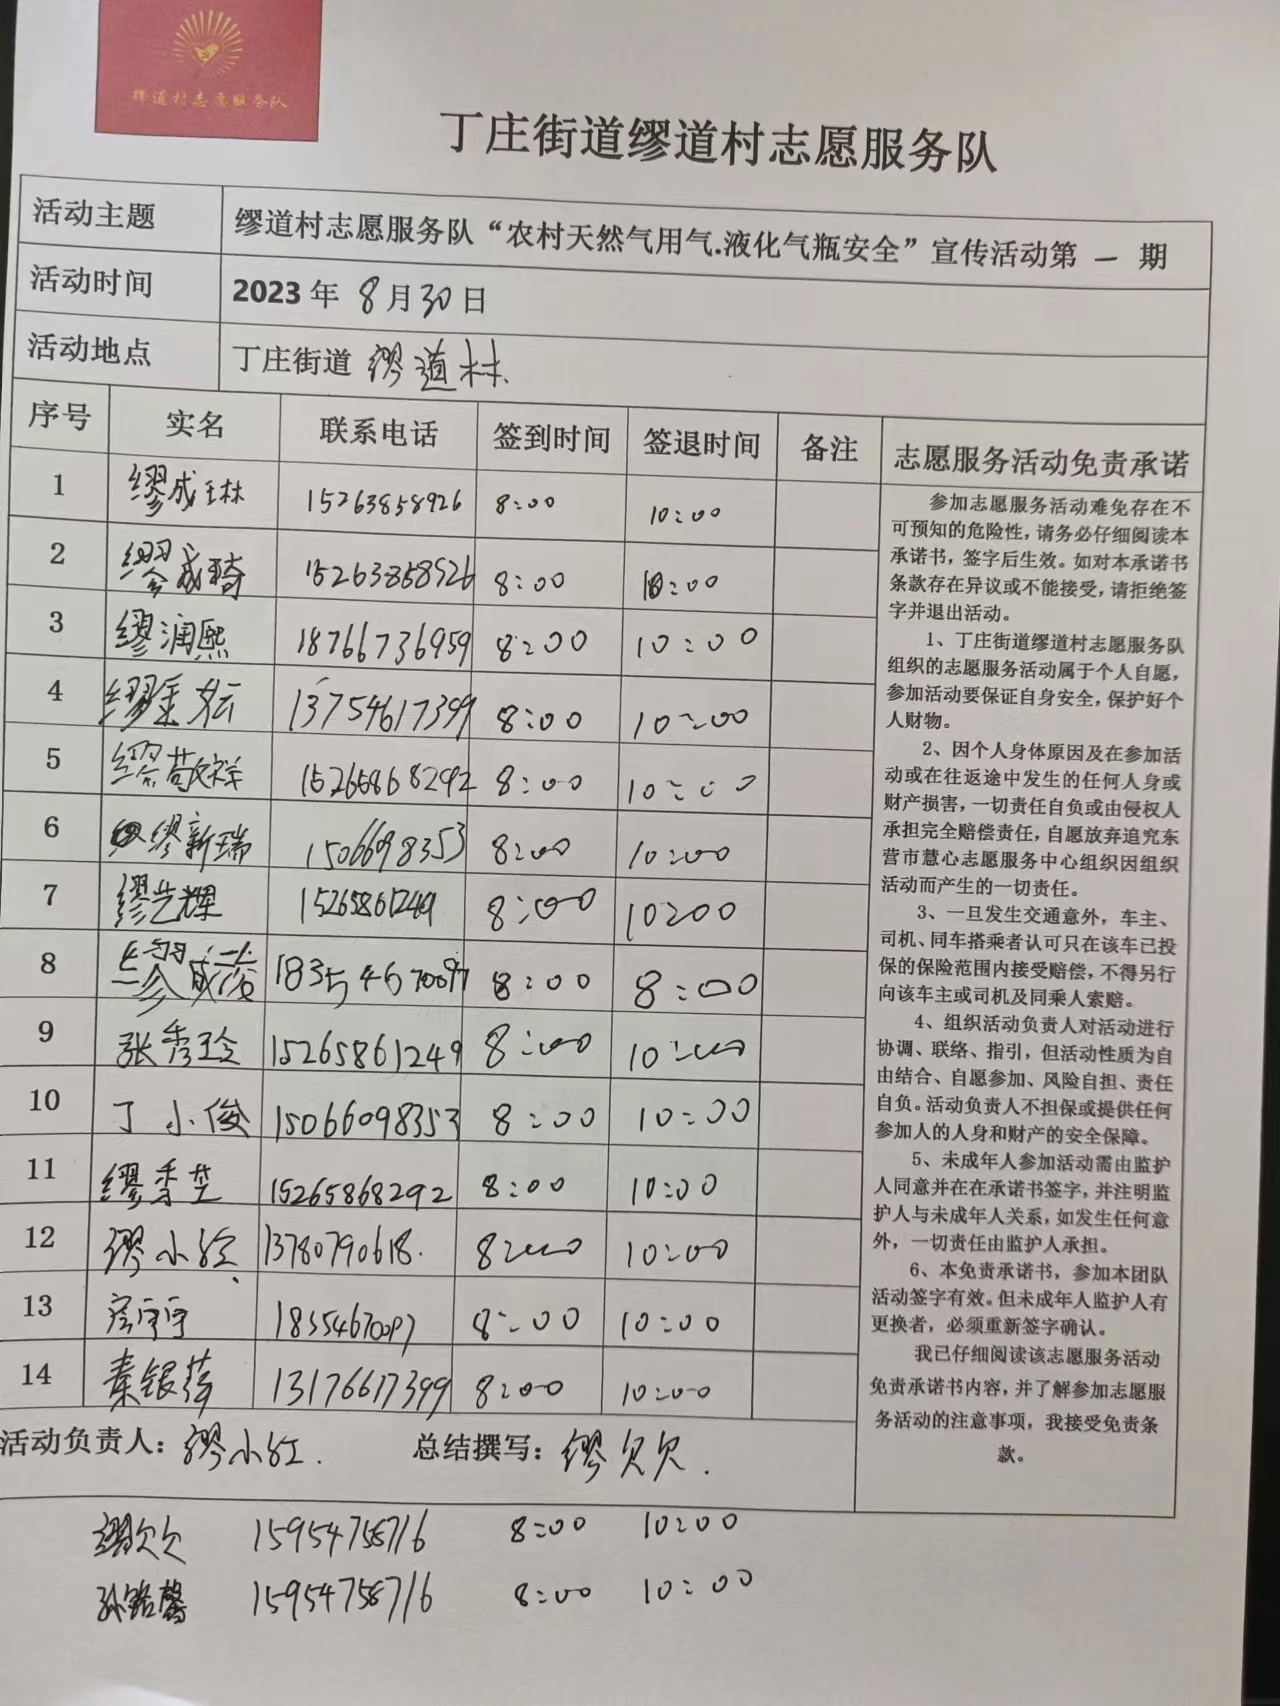 缪道村志愿服务队
丁庄街道缪道村志愿服务队
活动主题 缪道村志愿服务队“农村天然气用气.液化气瓶安全”宣传活动第 一 期
活动时间 2023年 8月30日
活动地点 丁庄街道 缪道村.
序号 实名 联系电话 签到时间 签退时间 备注 志愿服务活动免责承诺
1 缪成琳 15263858926 8:00 10:00
2 缪成琦 15263858926 8:00 10:00
3 缪润熙 18766736959 8:00 10:00
4 缪 13754617399 8:00 10:00
5 缪敬祥 15265868292 8:00 10:00
6 缪新瑞 15066098353 8:00 10:00
7 缪艺辉 15265861249 8:00 10:00
8 缪成 18354670097 8:00 8:00
9 张秀玲 15265861249 8:00 10:00
10 丁小俊 15066098353 8:00 10:00
11 缪秀芝 15265868292 8:00 10:00
12 缪小红. 13780790618. 8:00 10:00
13 18354670097 8:00 10:00
14 秦银萍 13176617399 8:00 10:00
参加志愿服务活动难免存在不
可预知的危险性，请务必仔细阅读本
承诺书，签字后生效。如对本承诺书
条款存在异议或不能接受，请拒绝签
字并退出活动。
1、丁庄街道缪道村志愿服务队
组织的志愿服务活动属于个人自愿，
参加活动要保证自身安全，保护好个
人财物。
2、因个人身体原因及在参加活
动或在往返途中发生的任何人身或
财产损害，一切责任自负或由侵权人
承担完全赔偿责任，自愿放弃追究东
营市慧心志愿服务中心组织因组织
活动而产生的一切责任。
3、一旦发生交通意外，车主、
司机、同车搭乘者认可只在该车已投
保的保险范围内接受赔偿，不得另行
向该车主或司机及同乘人索赔。
4、组织活动负责人对活动进行
协调、联络、指引，但活动性质为自
由结合、自愿参加、风险自担、责任
自负。活动负责人不担保或提供任何
参加人的人身和财产的安全保障。
5、未成年人参加活动需由监护
人同意并在在承诺书签字，并注明监
护人与未成年人关系，如发生任何意
外，一切责任由监护人承担。
6、本免责承诺书，参加本团队
活动签字有效。但未成年人监护人有
更换者，必须重新签字确认。
我已仔细阅读该志愿服务活动
免责承诺书内容，并了解参加志愿服
务活动的注意事项，我接受免责条
款。
活动负责人：缪小红. 总结撰写：缪欠欠.
缪欠欠 15954758716 8:00 10:00
孙铭馨 15954758716 8:00 10:00